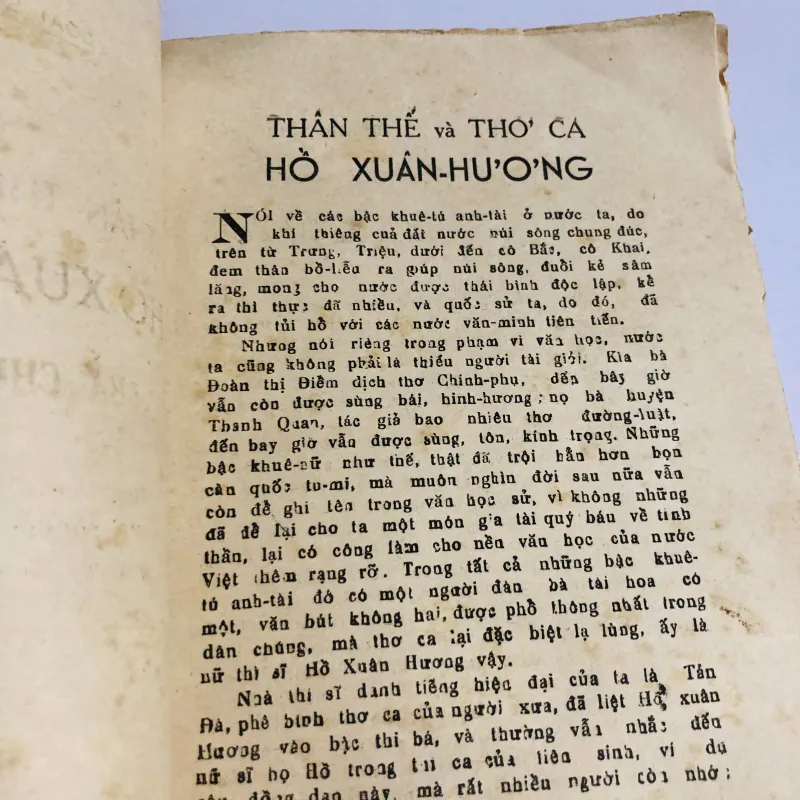 THÂN THẾ và THƠ CA
HỒ XUÂN-HƯƠNG
NÓI về các bậc khuê-tú anh-tài ở nước ta, do
khí thiêng của đất nước núi sông chung đúc,
trên từ Trưng, Triệu, dưới đến cô Bắc, cô Khai,
đem thân bồ-liễu ra giúp núi sông, đuổi kẻ sâm
lăng, mong cho nước được thái bình độc lập, kể
ra thì thực đã nhiều, và quốc sử ta, do đó, đã
không tủi hổ với các nước văn-minh tiên tiến.
Nhưng nói riêng trong phạm vi văn học, nước
ta cũng không phải là thiếu người tài giỏi. Kìa bà
Đoàn thị Điểm dịch thơ Chinh-phụ, đến bây giờ
vẫn còn được sùng bái, hinh-hương; nọ bà huyện
Thanh Quan, tác giả bao nhiêu thơ đường-luật,
đến bay giờ vẫn được sùng, tôn, kính trọng. Những
bậc khuê-nữ như thế, thật đã trội hẳn hơn bọn
cân quốc tu-mi, mà muôn nghìn đời sau nữa vẫn
còn để ghi tên trong văn học sử, vì không những
đã để lại cho ta một món gia tài quý báu về tinh
thần, lại có công làm cho nền văn học của nước
Việt thêm rạng rỡ. Trong tất cả những bậc khuê-
tú anh-tài đó có một người đàn bà tài hoa có
một, văn bút không hai, được phổ thông nhất trong
dân chúng, mà thơ ca lại đặc biệt lạ lùng, ấy là
nữ thi sĩ Hồ Xuân Hương vậy.
Nhà thi sĩ danh tiếng hiện đại của ta là Tản
Đà, phê bình thơ ca của người xưa, đã liệt Hồ xuân
Hương vào bậc thi bá, và thường vẫn nhắc đến
nữ sĩ họ Hồ trong thi ca của tiên sinh, ví dụ
đồng dao này, mà rất nhiều người còn nhớ: